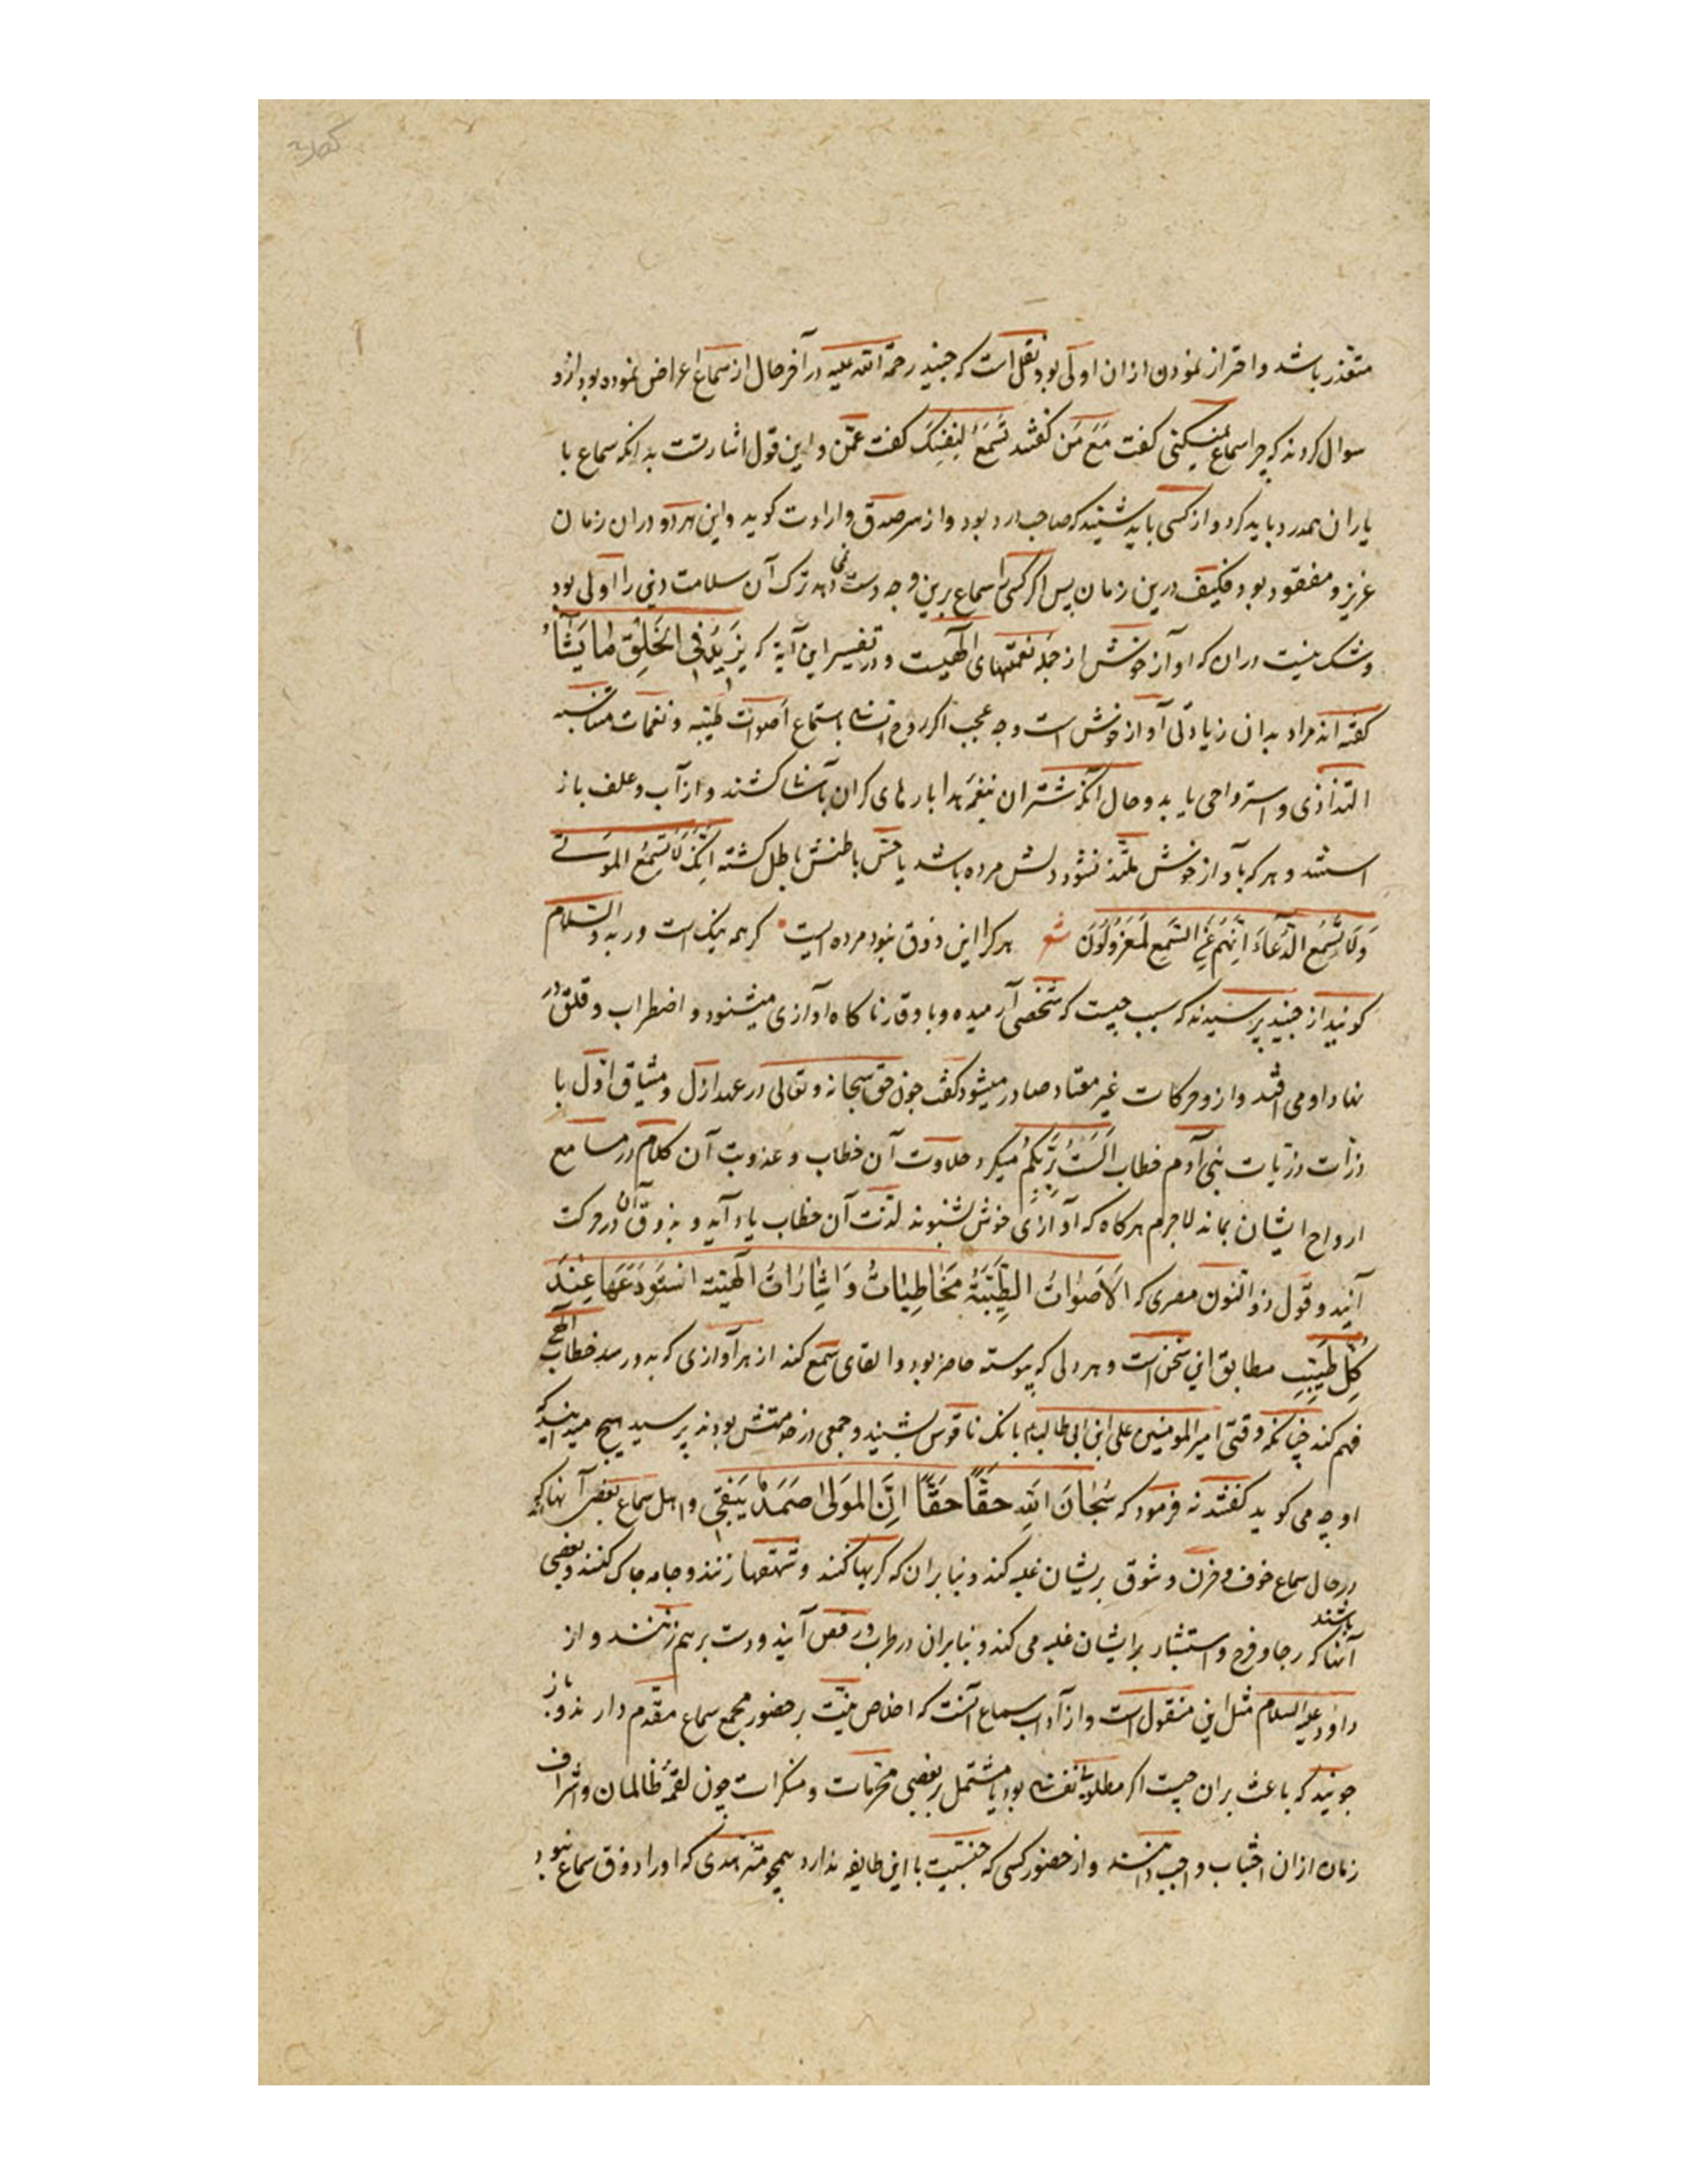 متعذر باشد و احتراز نمودن ازان اولی بود نقل است که جنید رحمة الله علیه در آخر حال از سماع اعراض نموده بود ازو
سوال کردند که چرا سماع نمیکنی گفت مَعَ مَن گفتند تَسمَعُ لِنَفسِکَ گفت عَمَّن و این قول اشارتست بدانکه سماع با
یاران همدرد باید کرد و از کسی باید شنید که صاحب درد بود و از سر صدق و ارادت گوید و این هر دو دران زمان
عزیز و مفقود بود فکیف درین زمان پس اگر کسی را سماع برین وجه دست نمی دهد ترک آن سلامت دینی را اولی بود
و شک نیست دران که آواز خوش از جمله نعمتهای الهیست و در تفسیر این آیة که یَزِیدُ فِی الخَلقِ مَا یَشَآءُ
گفته اند مراد بدان زیادتی آواز خوش است و چه عجب اگر روح انسانی باستماع اصوات طیبه و نغمات متناسبه
التذاذی و استرواحی یابد و حال آنکه شتران بنغمه حدا بارهای گران بآسانی کشند و از آب و علف باز
استند و هر که بآواز خوش ملتذ نشود دلش مرده باشد یا حس باطنش باطل گشته اِنَّکَ لَا تُسمِعُ المَوتی
وَلَا تُسمِعُ الدُّعَاءَ اِنَّهُم عَنِ السَّمعِ لَمَعزُولُونَ شعر هر کرا این ذوق نبود مرده ایست گر همه نیک است ور بد والسلام
گویند از جنید پرسیدند که سبب چیست که شخصی آرمیده و با وقار ناگاه آوازی میشنود و اضطراب و قلق در
نهاد او می افتد و ازو حرکات غیر معتاد صادر میشود گفت چون حق سبحانه و تعالی در عهد ازل و میثاق اوّل با
ذرّات ذرّیات بنی آدم خطاب اَلَستُ بِرَبِّکُم میکرد حلاوت آن خطاب و عذوبت آن کلام در مسامع
ارواح ایشان بماند لاجرم هر گاه که آوازی خوش بشنوند لذّت آن خطاب یاد آید و بذوق آن در حرکت
آیند و قول ذو النّون مصری که الاَصوَاتُ الطَّیِّبَةُ مُخَاطِبَاتٌ وَ اِشَارَاتٌ اِلٰهیّة استَودَعَهَا عِندَ
کُلِّ طَیِّبٍ مطابق این سخن است و هر دلی که پیوسته حاضر بود و القای سمع کند از هر آوازی که بدو رسد خطاب الهی
فهم کند چنانکه وقتی امیر المومنین علی ابن ابی طالب بانک ناقوس بشنید و جمعی در خدمتش بودند پرسید هیچ میدانید که
او چه می گوید گفتند نه فرمود که سُبحَانَ اللهِ حَقًّا حَقًّا اِنَّ المَولٰی صَمَدٌ یَبقٰی و اهل سماع بعضی آنها که
در حال سماع خوف و حزن و شوق بریشان غلبه کند و بنا بران که گریها کنند و شهقها زنند و جامه چاک کنند و بعضی
آنها که رجا و فرح و استبشار برایشان غلبه می کند و بنا بران در طرب و رقص آیند و دست برهم زنند و از باشند
داود علیه السلام مثل این منقول است و از آداب سماع آنست که اخلاص نیّت بر حضور مجمع سماع مقدّم دارند و باز
جویند که باعث بران چیست اگر مطلوبی نفسانی بود یا مشتمل بر بعضی محرّمات و منکرات چون لقمهٔ ظالمان و اشراف
زنان ازان اجتناب واجب دانند و از حضور کسی که جنسیت با این طایفه ندارد همچو متزهدی که او را ذوق سماع نبود